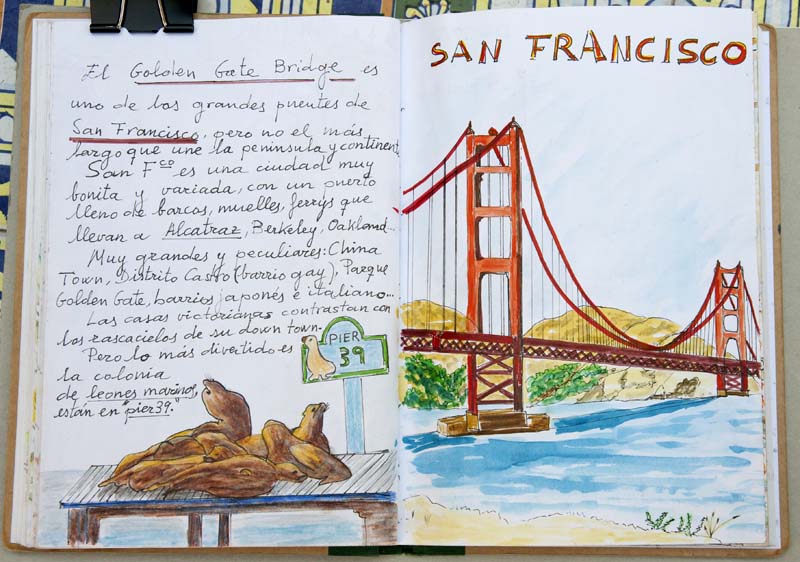 El Golden Gate Bridge es
uno de los grandes puentes de
San Francisco, pero no el más
largo que une la península y continente
San Fco es una ciudad muy
bonita y variada, con un puerto
lleno de barcos, muelles, ferrys que
llevan a Alcatraz, Berkeley, Oakland...
Muy grandes y peculiares: China
Town, Distrito Castro (barrio gay), Parque
Golden Gate, barrios japonés e italiano...
Las casas victorianas contrastan con
los rascacielos de su down town.
Pero lo más divertido es
la colonia
de leones marinos,
están en "pier 39."
PIER
39
SAN FRANCISCO